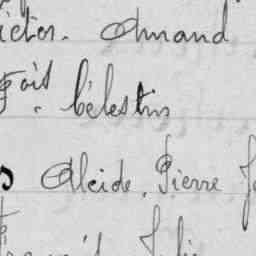 ictor. Amand
Fois. Célestin
s Alcide. Pierre J